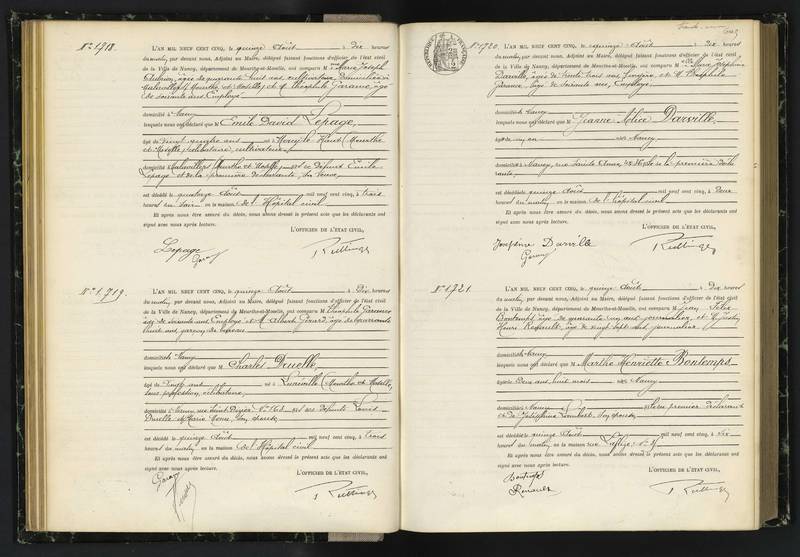 N° 1.718.
L'AN MIL NEUF CENT CINQ, le quinze Août à Dix heures
du matin, par devant nous, Adjoint au Maire, délégué faisant fonctions d'officier de l'état civil
de la Ville de Nancy, département de Meurthe-et-Moselle, ont comparu M Marie Joseph
âgée de quarante huit ans, cultivatrice, Domiciliée à
(Meurthe et Moselle) et M. Théophile Garaux, âgé
de soixante ans, Employé
domicilié à Nancy
lesquels nous ont déclaré que M Emile David Lepage,
âgé de vingt ans né à Haut (Meurthe
et Moselle), célibataire, cultivateur
domicilié à (Meurthe et Moselle), fils de défunt Emile
Lepage et de la première déclarante, sa veuve
est décédé le quatorze Août mil neuf cent cinq, à trois
heures du soir en la maison de l'Hôpital civil
Et après nous être assuré du décès, nous avons dressé le présent acte que les déclarants ont
signé avec nous après lecture.
L'OFFICIER DE L'ÉTAT CIVIL,
Lepage
N° 1.719.
L'AN MIL NEUF CENT CINQ, le quinze Août à Dix heures
du matin, par devant nous, Adjoint au Maire, délégué faisant fonctions d'officier de l'état civil
de la Ville de Nancy, département de Meurthe-et-Moselle, ont comparu M Théophile Garaux
âgé de soixante ans, Employé et M. Albert Girard, âgé de quarante
huit ans, garçon de bureau
domiciliés à Nancy
lesquels nous ont déclaré que M Charles Druelle,
âgé de vingt ans né à Lunéville (Meurthe et Moselle),
sans profession, célibataire,
domicilié à Nancy, rue Saint Dizier, N° 161 fils de défunts Louis
Druelle et Marie son épouse
est décédé le quinze Août mil neuf cent cinq, à trois
heures du matin en la maison de l'Hôpital civil
Et après nous être assuré du décès, nous avons dressé le présent acte que les déclarants ont
signé avec nous après lecture.
L'OFFICIER DE L'ÉTAT CIVIL,
N° 1720.
L'AN MIL NEUF CENT CINQ, le quinze Août à Dix heures
du matin, par devant nous, Adjoint au Maire, délégué faisant fonctions d'officier de l'état civil
de la Ville de Nancy, département de Meurthe-et-Moselle, ont comparu M Marie Joséphine
Darville, âgée de trente trois ans, lingère et M. Théophile
Garaux, âgé de soixante ans, Employé
domiciliés à Nancy
lesquels nous ont déclaré que M Jeanne Alice Darville,
âgée de un an née à Nancy
domiciliée à Nancy, rue Sainte Anne, fille de la première Décla-
rante
est décédée le quinze Août mil neuf cent cinq, à Deux
heures du matin en la maison de l'hôpital civil
Et après nous être assuré du décès, nous avons dressé le présent acte que les déclarants ont
signé avec nous après lecture.
L'OFFICIER DE L'ÉTAT CIVIL,
Joséphine Darville
N° 1721.
L'AN MIL NEUF CENT CINQ, le quinze Août à Dix heures
du matin, par devant nous, Adjoint au Maire, délégué faisant fonctions d'officier de l'état civil
de la Ville de Nancy, département de Meurthe-et-Moselle, ont comparu M Jean Félix
Bontemps âgé de quarante cinq ans journalier, et M.
Henri Renault, âgé de vingt sept ans journalier
domiciliés à Nancy
lesquels nous ont déclaré que M Marthe Henriette Bontemps
âgée de Deux ans, huit mois née à Nancy
domiciliée à Nancy fille du premier déclarant
et de Lombard, son épouse
est décédée le quinze Août mil neuf cent cinq, à six
heures du matin en la maison rue
Et après nous être assuré du décès, nous avons dressé le présent acte que les déclarants ont
signé avec nous après lecture.
L'OFFICIER DE L'ÉTAT CIVIL,
Bontemps
Renault